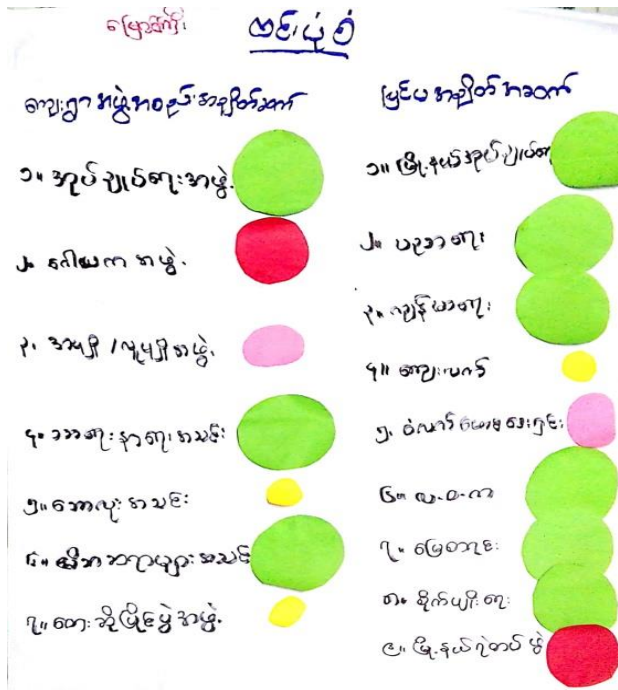 မြောက်ကြီး
ဗင်းပုံစံ
ကျေးရွာအဖွဲ့အစည်းအချိတ်ဆက်
၁။ အုပ်ချုပ်ရေးအဖွဲ့
၂။ ဂေါပကအဖွဲ့
၃။ အမျိုး/လူမျိုးအဖွဲ့
၄။ သာရေးနာရေးအသင်း
၅။ ဘောလုံးအသင်း
၆။ အိုးဘအဆရာများအသင်း
၇။ တေးဆိုပြိုင်ပွဲအဖွဲ့
ပြင်ပအချိတ်အဆက်
၁။ မြို့နယ်အုပ်ချုပ်ရေး
၂။ ပညာရေး
၃။ ကျန်းမာရေး
၄။ ကျေးလက်
၅။
၆။ လ.ဝ.က
၇။ မြေစာရင်း
၈။ စိုက်ပျိုးရေး
၉။ မြို့နယ်ရဲတပ်ဖွဲ့